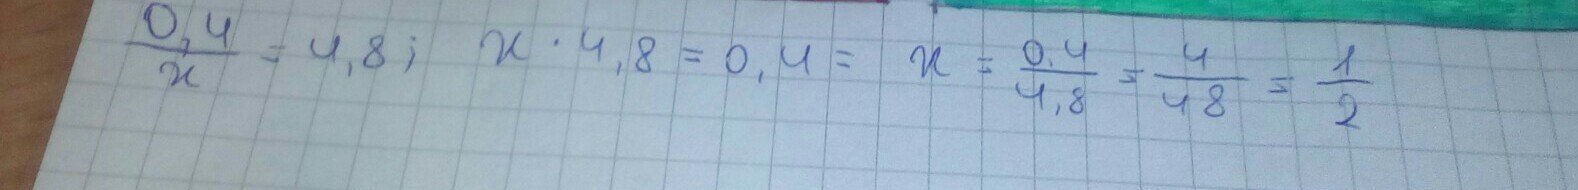 0,4/x = 4,8; x · 4,8 = 0,4 = x = 0,4/4,8 = 4/48 = 1/2